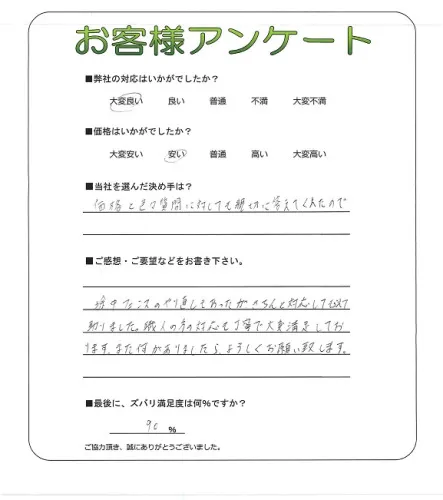 お客様アンケート
■弊社の対応はいかがでしたか？
大変良い 良い 普通 不満 大変不満
■価格はいかがでしたか？
大変安い 安い 普通 高い 大変高い
■当社を選んだ決め手は？
価格と 質問に対しても親切に答えてくれたので
■ご感想・ご要望などをお書き下さい。
途中 のやり直しもあったがきちんと対応して
助りました。職人の方の対応も丁寧で大変満足してお
ります。また何かありましたら、よろしくお願い致します。
■最後に、ズバリ満足度は何％ですか？
90 ％
ご協力頂き、誠にありがとうございました。